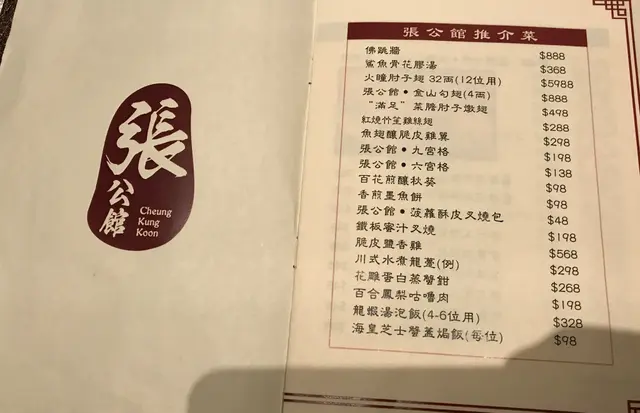 張公館
Cheung
Kung
Koon
張公館推介菜
佛跳牆 $888
鯊魚骨花膠湯 $368
火瞳肘子翅 32両(12位用) $5988
張公館•金山勾翅(4両) $888
“滿足”菜膽肘子燉翅 $498
紅燒竹笙雞絲翅 $288
魚翅釀脆皮雞翼 $298
張公館•九宮格 $198
張公館•六宮格 $138
百花煎釀秋葵 $98
香煎墨魚餅 $98
張公館•菠蘿酥皮叉燒包 $48
鐵板蜜汁叉燒 $198
脆皮鹽香雞 $568
川式水煮龍躉(例) $298
花雕蛋白蒸蟹鉗 $268
百合鳳梨咕嚕肉 $198
龍蝦湯泡飯(4-6位用) $328
海皇芝士蟹蓋焗飯(每位) $98